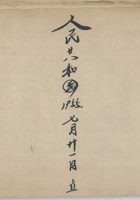 人民共和國1955.七月廿一日立